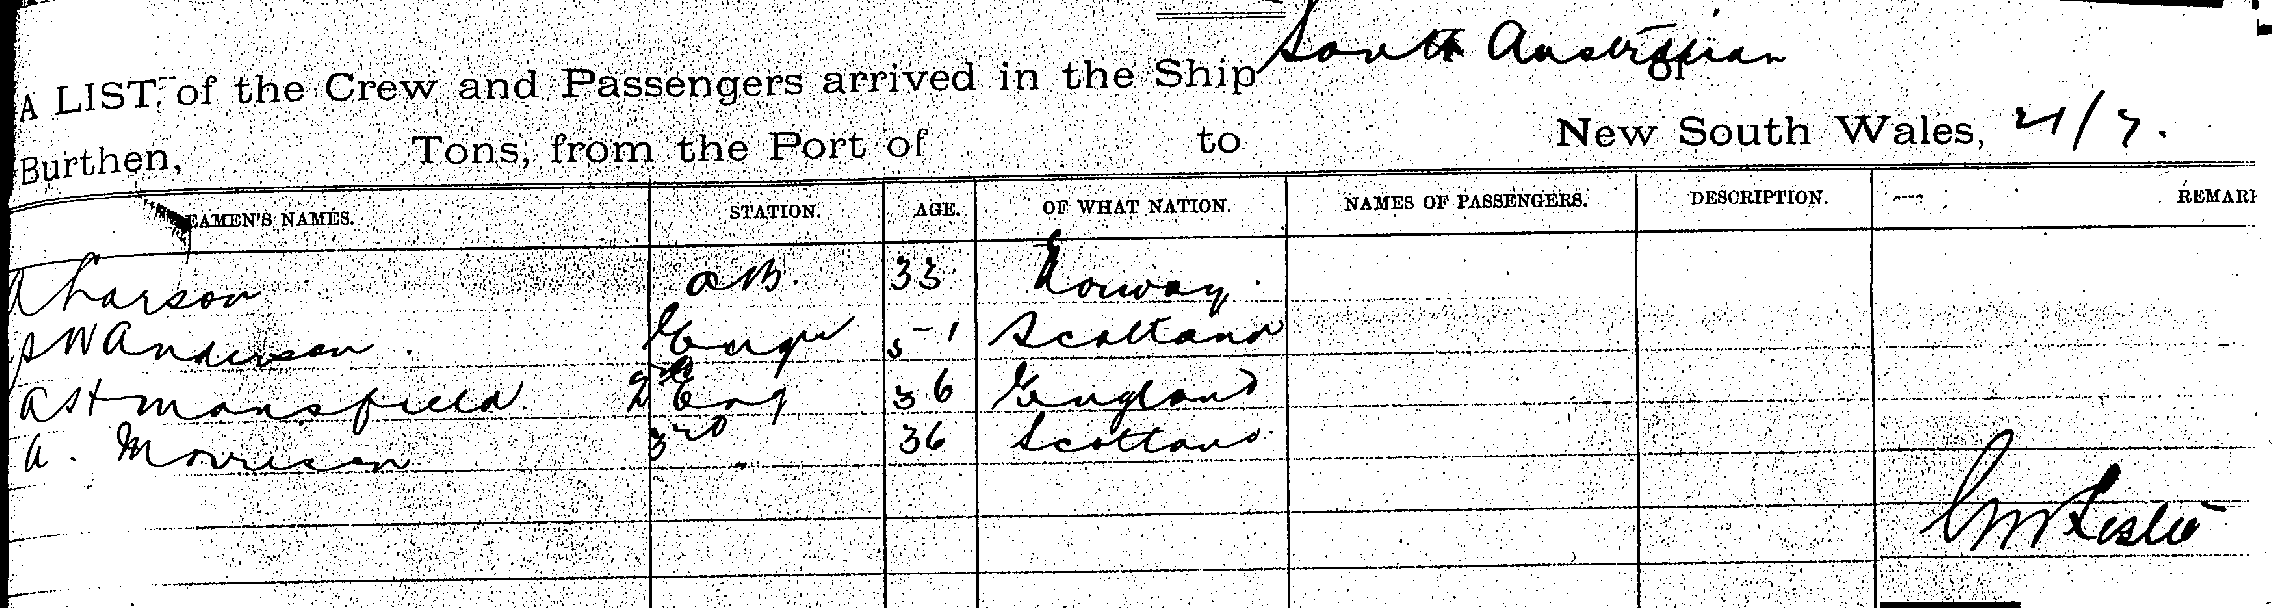 A LIST, of the Crew and Passengers arrived in the Ship South Australian of
Burthen, Tons, from the Port of to New South Wales, 21/7.
EAMEN'S NAMES. STATION. AGE. OF WHAT NATION. NAMES OF PASSENGERS. DESCRIPTION. REMARK
A Larson AB. 33 Norway.
W Anderson. Engr 51 Scotland
A H Mansfield. 2nd Eng 36 England
A. Morrison 3rd 36 Scotland
Leslie